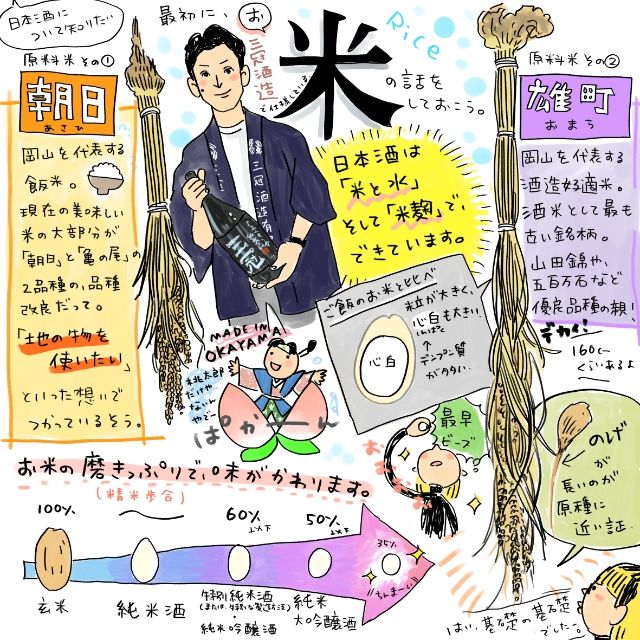 日本酒に
ついて知りたい
最初に、
お
米
Rice
三冠酒造
で仕様している
の話を
しておこう。
原料米その①
朝日
あさひ
岡山を代表する
飯米。
現在の美味しい
米の大部分が
「朝日」と「亀の尾」の
2品種の、品種
改良だって。
「地の物を
使いたい」
といった想いで
つかっているそう。
三冠酒造有
日本酒は
「米と水」
そして「米麹」で、
できています。
原料米その②
雄町
おまち
岡山を代表する
酒造好適米。
酒米として最も
古い銘柄。
山田錦や、
五百万石など
優良品種の親!
デカイ!
160cm
くらいあるよ
ご飯のお米とくらべ
粒が大きく、
心白も大きい。
しんぱく
↑
デンプン質
がタカイ
心白
MADE IN
OKAYAMA!
桃太郎
だけや
ないん
やでー
ぱかーん
最早
ビーズ
のげ
が
長いのが
原種に
近い証。
お米の磨きっぷりで、味がかわります。
(精米歩合)
100%
60%以下
50%以下
35%
ちんまーい
玄米
純米酒
特別純米酒
(または、特別な製造方法)
・純米吟醸酒
純米
大吟醸酒
はい、基礎の基礎
でした。